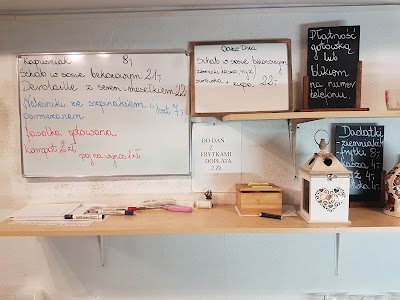 Kapuśniak 8,-
Schab w sosie bekonowym 21,-
Devolaille z serem i masełkiem 22,-
Naleśniki ze szpinakiem
parmezanem
fasolka gotowana
kompot 2 zł
na wynos 1 zł
Danie Dnia
Schab w sosie bekonowym
surówka + zupa 22,-
Płatność
gotówką
lub
blikiem
na numer
telefonu.
DO DAŃ
Z
FRYTKAMI
DOPŁATA
2 ZŁ
Dodatki
-ziemniaki
-frytki 8,-
kasza 4,-
ryż 4,-